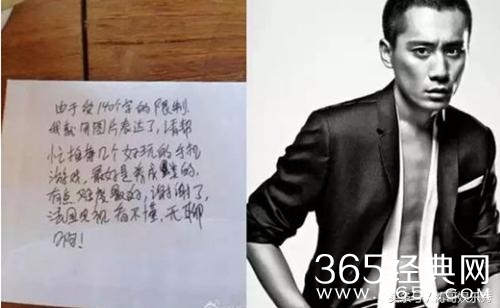 由于受140个字的限制
我就用图片表达了,请帮
忙推荐几个好玩的手机
游戏,最好是养成类的,
有点难度最好,谢谢了,
法国电视看不懂,无聊
啊!
365经典网
www.365j.com